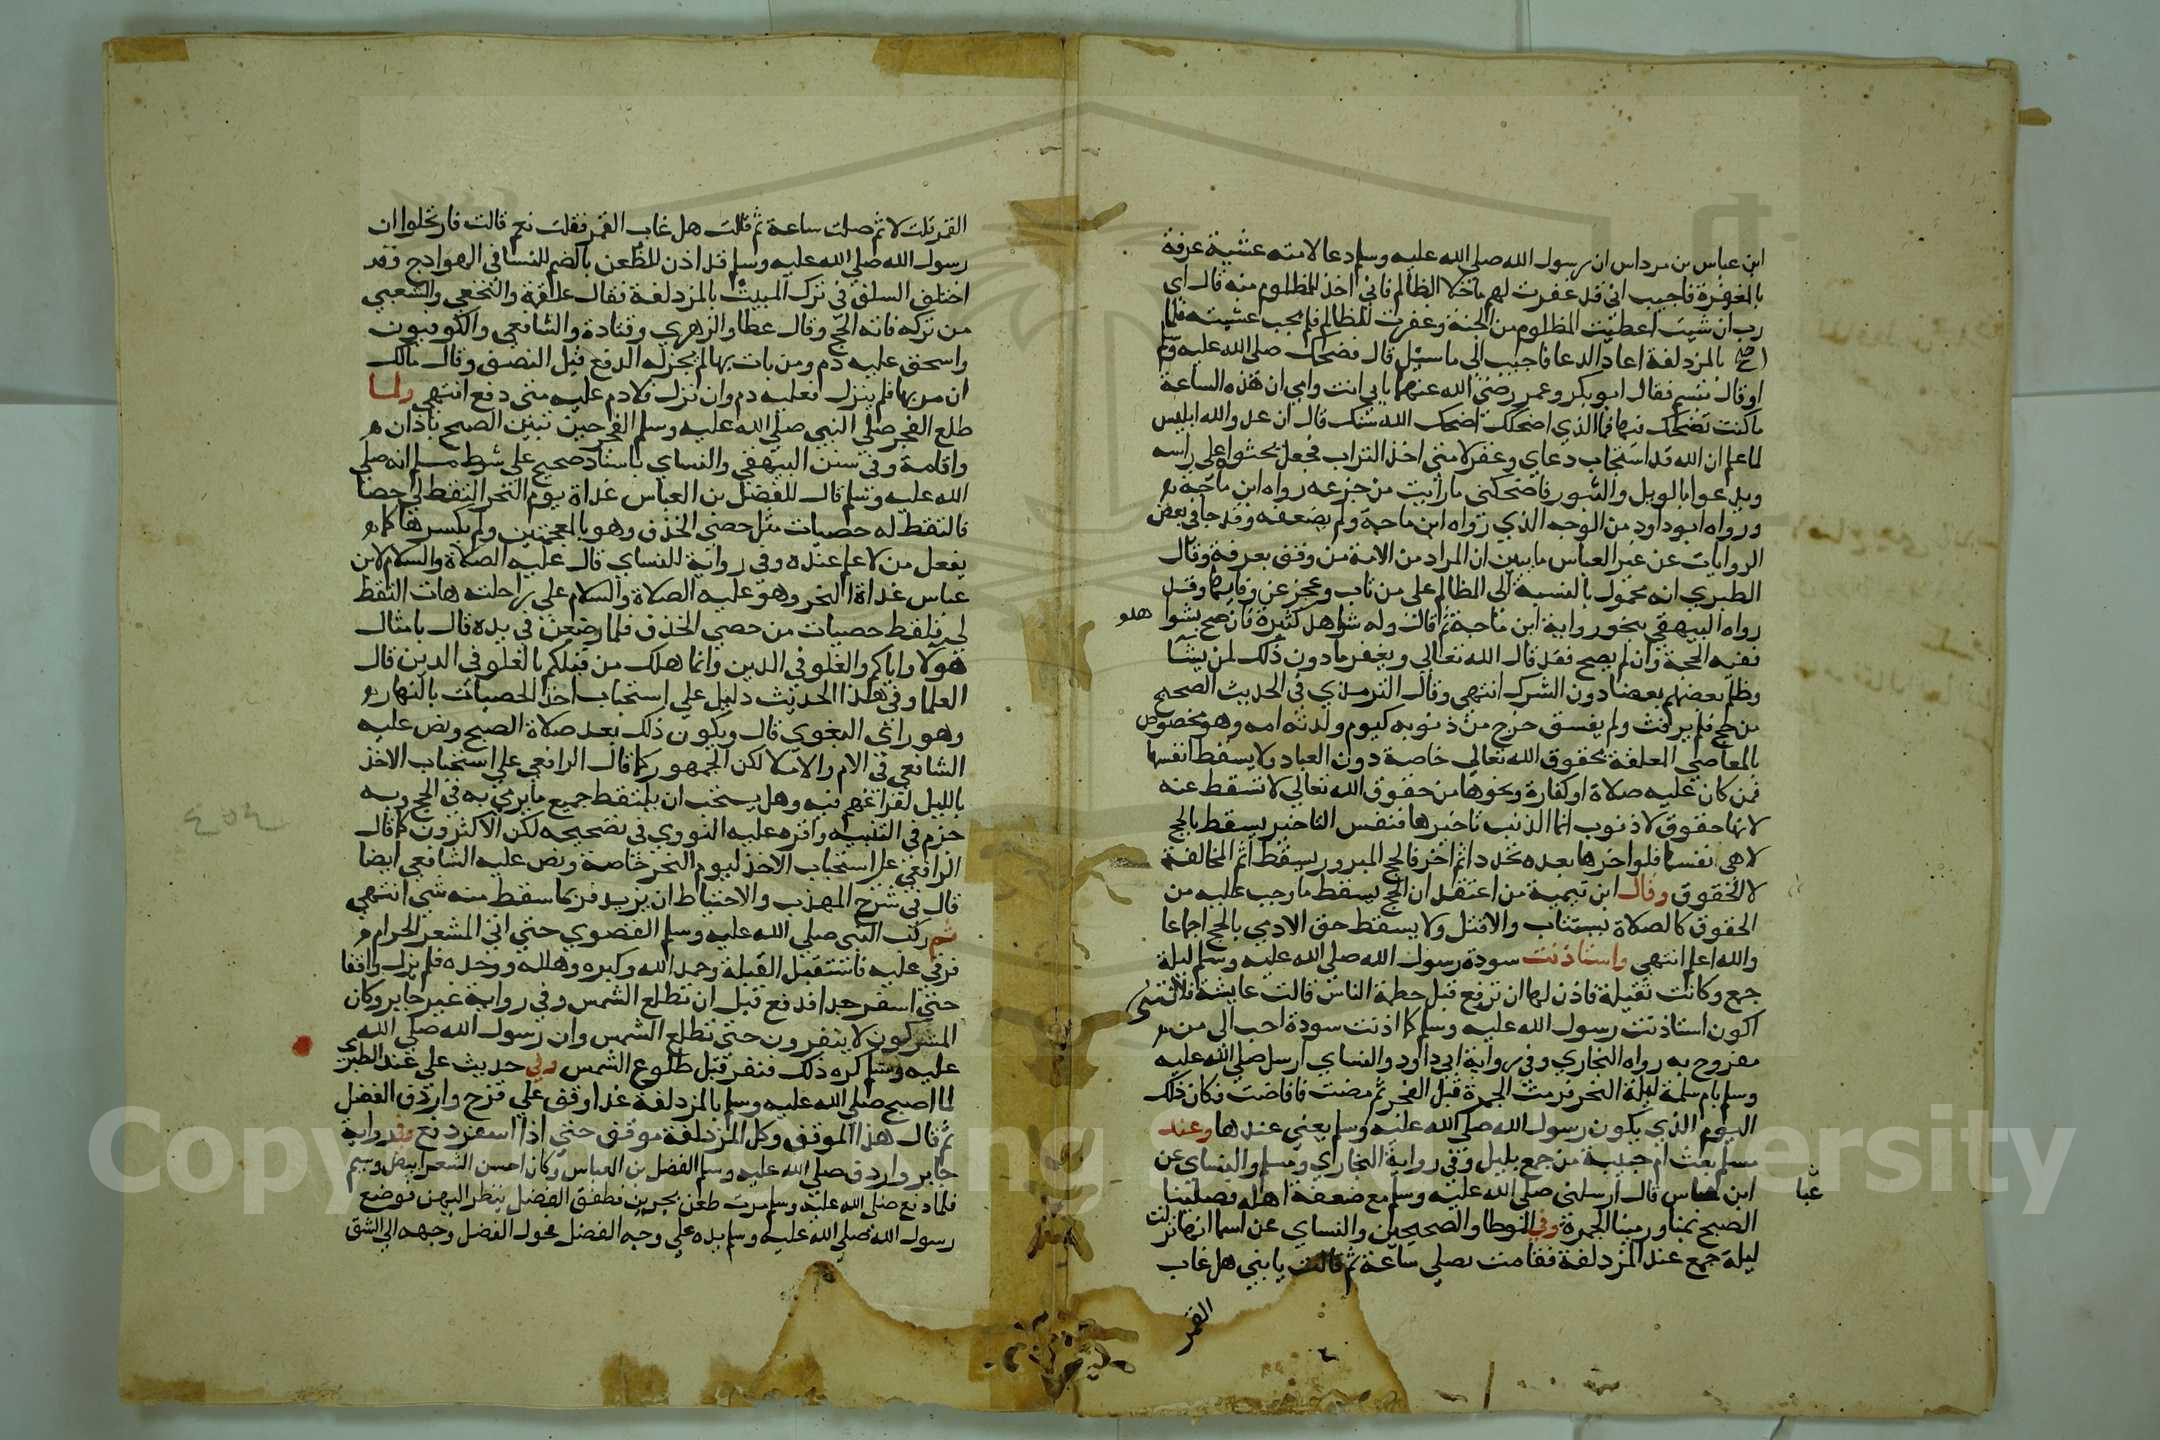 ابن عباس بن مرداس ان رسول الله صلي الله عليه وسلم دعا لامته عشية عرفة
بالمغفرة فاجيب اني قد غفرت لهم ما خلا الظالم فاني اخذ للمظلوم منه قال اي
رب ان شيت اعطيت المظلوم من الجنة وغفرت للظالم فلم يجب عشيته فلما
اصبح بالمزدلفة اعاد الدعا فاجيب الي ما سيل قال فضحك صلي الله عليه وسلم
او قال تبسم فقال ابو بكر وعمر رضي الله عنهما بابي انت وامي ان هذه الساعة
ما كنت تضحك فيها فما الذي اضحكك اضحك الله سنك قال ان عدو الله ابليس
لما علم ان الله قد استجاب دعاي وغفر لامتي اخذ التراب فجعل يحثوا علي راسه
ويدعوا بالويل والثبور فاضحكني ما رايت من جزعه رواه ابن ماجه
ورواه ابو داود من الوجه الذي رواه ابن ماجة ولم يضعفه وقد جا في بعض
الروايات عن غير العباس ما يبين ان المراد من الامة من وقف بعرفة وقال
الطبري انه محمول بالنسبة الي المظالم علي من تاب وعجز عن وفايها وقد
رواه البيهقي بنحو رواية ابن ماجة ثم قال وله شواهد كثيرة فان صح بشواهده
ففيه الحجة وان لم يصح فقد قال الله تعالي ويغفر ما دون ذلك لمن يشا
وظلم بعضهم بعضا دون الشرك انتهي وقال الترمذي في الحديث الصحيح
من حج فلم يرفث ولم يفسق خرج من ذنوبه كيوم ولدته امه وهو مخصوص
بالمعاصي المعلقة بحقوق الله تعالي خاصة دون العباد ولا يسقط انفسها
فمن كان عليه صلاة او كفارة ونحوها من حقوق الله تعالي لا تسقط عنه
لانها حقوق لا ذنوب انما الذنب تاخيرها فنفس التاخير يسقط بالحج
لا هي نفسها فلو اخرها بعده تجدد اثم اخر فالحج المبرور يسقط اثم المخالفة
لا الحقوق وقال ابن تيمية من اعتقد ان الحج يسقط ما وجب عليه من
الحقوق كالصلاة يستتاب والا قتل ولا يسقط حق الادمي بالحج اجماعا
والله اعلم انتهي واستاذنت سودة رسول الله صلي الله عليه وسلم ليلة
جمع وكانت ثقيلة فاذن لها ان ترفع قبل حطمة الناس قالت عايشة فلا ليتني
اكون استاذنت رسول الله عليه وسلم كما اذنت سودة احب الي من
مفروح به رواه البخاري وفي رواية ابي داود والنساي ارسل صلي الله عليه
وسلم بام سلمة ليلة النحر فرمت الجمرة قبل الفجر ثم مضت فافاضت فكان ذلك
اليوم الذي يكون رسول الله صلي الله عليه وسلم يعني عندها وعند
مسلم بعث ام حبيبة من جمع بليل وفي رواية البخاري ومسلم والنساي عن
ابن عباس قال ارسلني صلي الله عليه وسلم مع ضعفة اهله فصلينا
الصبح بمنا ورمينا الجمرة وفي الموطا والصحيحين والنساي عن اسما انها نزلت
ليلة جمع عند المزدلفة فقامت تصلي ساعة ثم قالت يا بني هل غاب
القمر
عبا
القمر قلت لا ثم صلت ساعة ثم قالت هل غاب القمر فقلت نعم قالت فارتحلوا ان
رسول الله صلي الله عليه وسلم قد اذن للظعن بالضم للنسا في الهوادج وقد
اختلف السلف في ترك المبيت بالمزدلفة فقال علقمة والنخعي والشعبي
من تركه فاته الحج وقال عطا والزهري وقتادة والشافعي والكوفيون
واسحق عليه دم ومن بات بها لم يجز له الدفع قبل النصف وقال مالك
ان مر بها فلم ينزل فعليه دم وان نزل فلا دم عليه متي دفع انتهي ولما
طلع الفجر صلي النبي صلي الله عليه وسلم الفجر حين تبين الصبح باذان
واقامة وفي سنن البيهقي والنساي باسناد صحيح علي شرط مسلم انه صلي
الله عليه وسلم قال للفضل بن العباس غداة يوم النحر التقط لي حصا
فالتقط له حصيات مثل حصي الخذف وهو بالمعجمتين ولم يكسرها كما
يفعل من لا علم عنده وفي رواية للنساي قال عليه الصلاة والسلام لابن
عباس غداة النحر وهو عليه الصلاة والسلام علي راحلته هات التقط
لي فلقط حصيات من حصي الخذف فلما وضعن في يده قال بامثال
هولا واياكم والغلو في الدين وانما هلك من قبلكم بالغلو في الدين قال
العلما وفي هذا الحديث دليل علي استحباب اخذ الحصيات بالنهار
وهو راي البغوي قال ويكون ذلك بعد صلاة الصبح ونص عليه
الشافعي في الام والاملا لكن الجمهور كما قال الرافعي علي استحباب الاخذ
بالليل لفراغهم فيه وهل يستحب ان يلتقط جميع ما يرمي به في الحج وبه
جزم في التنبيه واقره عليه النووي في تصحيحه لكن الاكثرون كما قال
الرافعي علي استحباب الاخذ ليوم النحر خاصة ونص عليه الشافعي ايضا
قال في شرح المهذب والاحتياط ان يزيد فربما سقط منه شي انتهي
ثم ركب النبي صلي الله عليه وسلم القصوي حتي اتي المشعر الحرام
فرقي عليه فاستقبل القبلة وحمد الله وكبره وهلله ووحده فلم يزل واقفا
حتي اسفر جدا فدفع قبل ان تطلع الشمس وفي رواية غير جابر وكان
المشركون لا ينفرون حتي تطلع الشمس وان رسول الله صلي الله
عليه وسلم كره ذلك فنفر قبل طلوع الشمس وفي حديث علي عند الطبري
لما اصبح صلي الله عليه وسلم بالمزدلفة غدا وقف علي قزح واردف الفضل
ثم قال هذا الموقف وكل المزدلفة موقف حتي اذا اسفر دفع وفي رواية
جابر واردف صلي الله عليه وسلم الفضل بن العباس وكان احسن الشعر ابيض وسيم
فلما دفع صلي الله عليه وسلم مرت ظعن يجرين فطفق الفضل ينظر اليهن فوضع
رسول الله صلي الله عليه وسلم يده علي وجه الفضل فحول الفضل وجهه الي الشق
Copyright © King Saud University